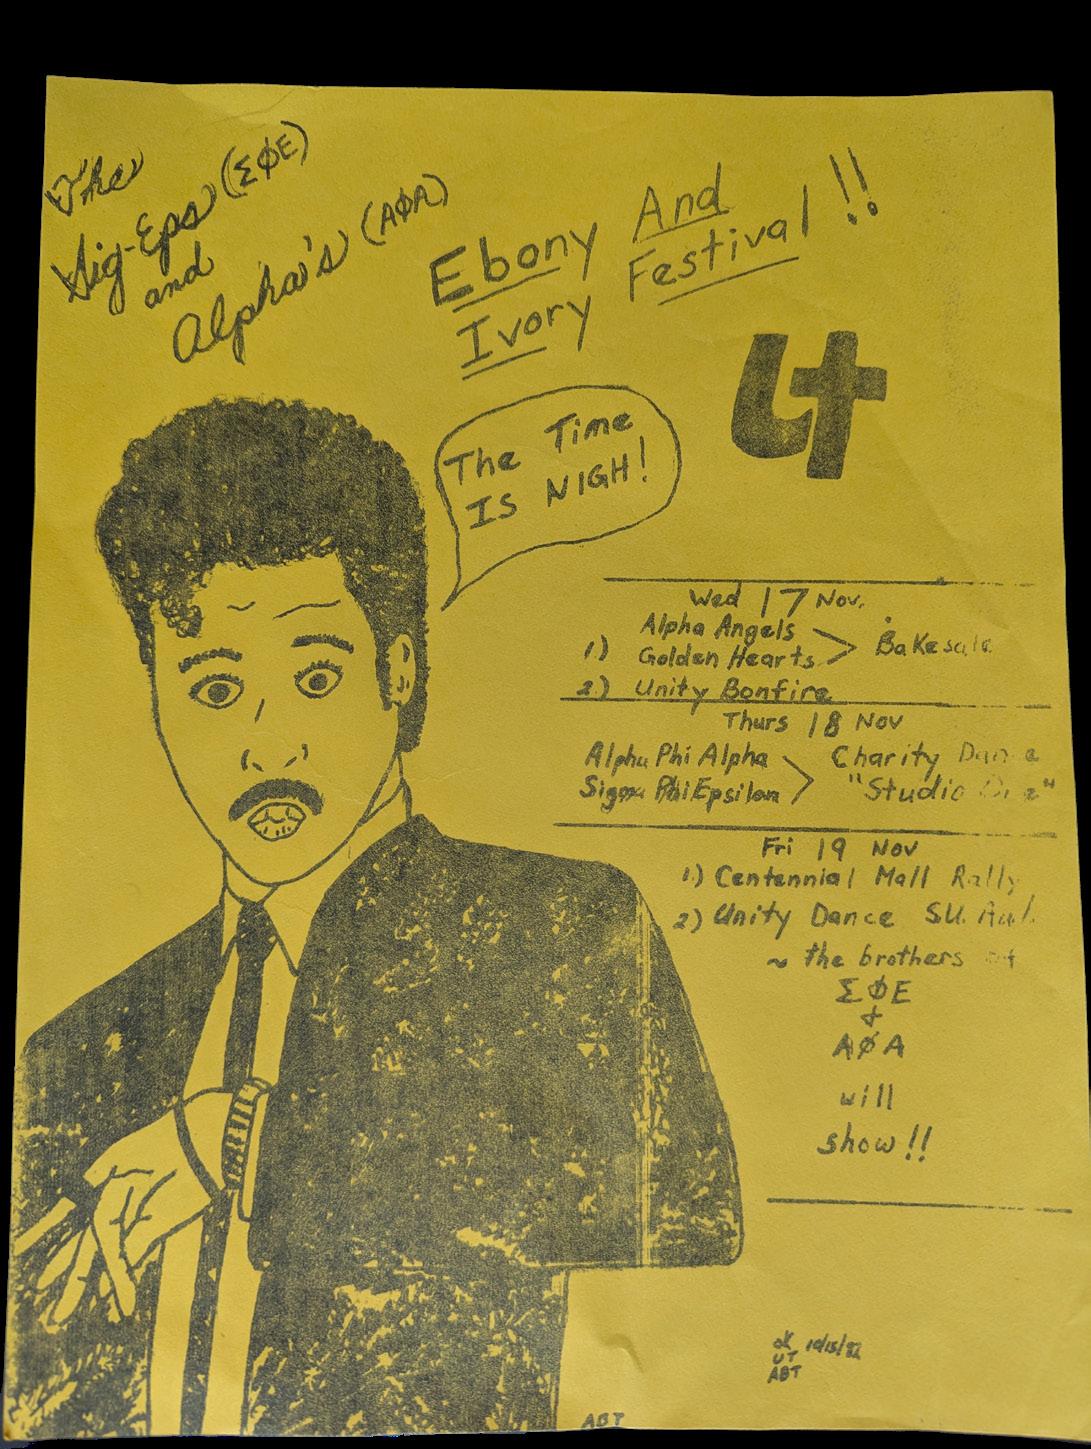 The
Sig-Eps (ΣΦΕ)
and
Alpha's (ΑΦΑ)
Ebony And
Ivory Festival!!
4
The Time
IS NIGH!
Wed 17 Nov.
1.) Alpha Angels
Golden Hearts > Bakesale
2.) Unity Bonfire
Thurs 18 Nov
Alpha Phi Alpha > Charity Dance
Sigma Phi Epsilon "Studio One"
Fri 19 Nov
1.) Centennial Mall Rally
2) Unity Dance SU. Aud.
~ the brothers of
ΣΦΕ
+
ΑΦΑ
will
show!!
10/15/82
UT
ABT
ABT